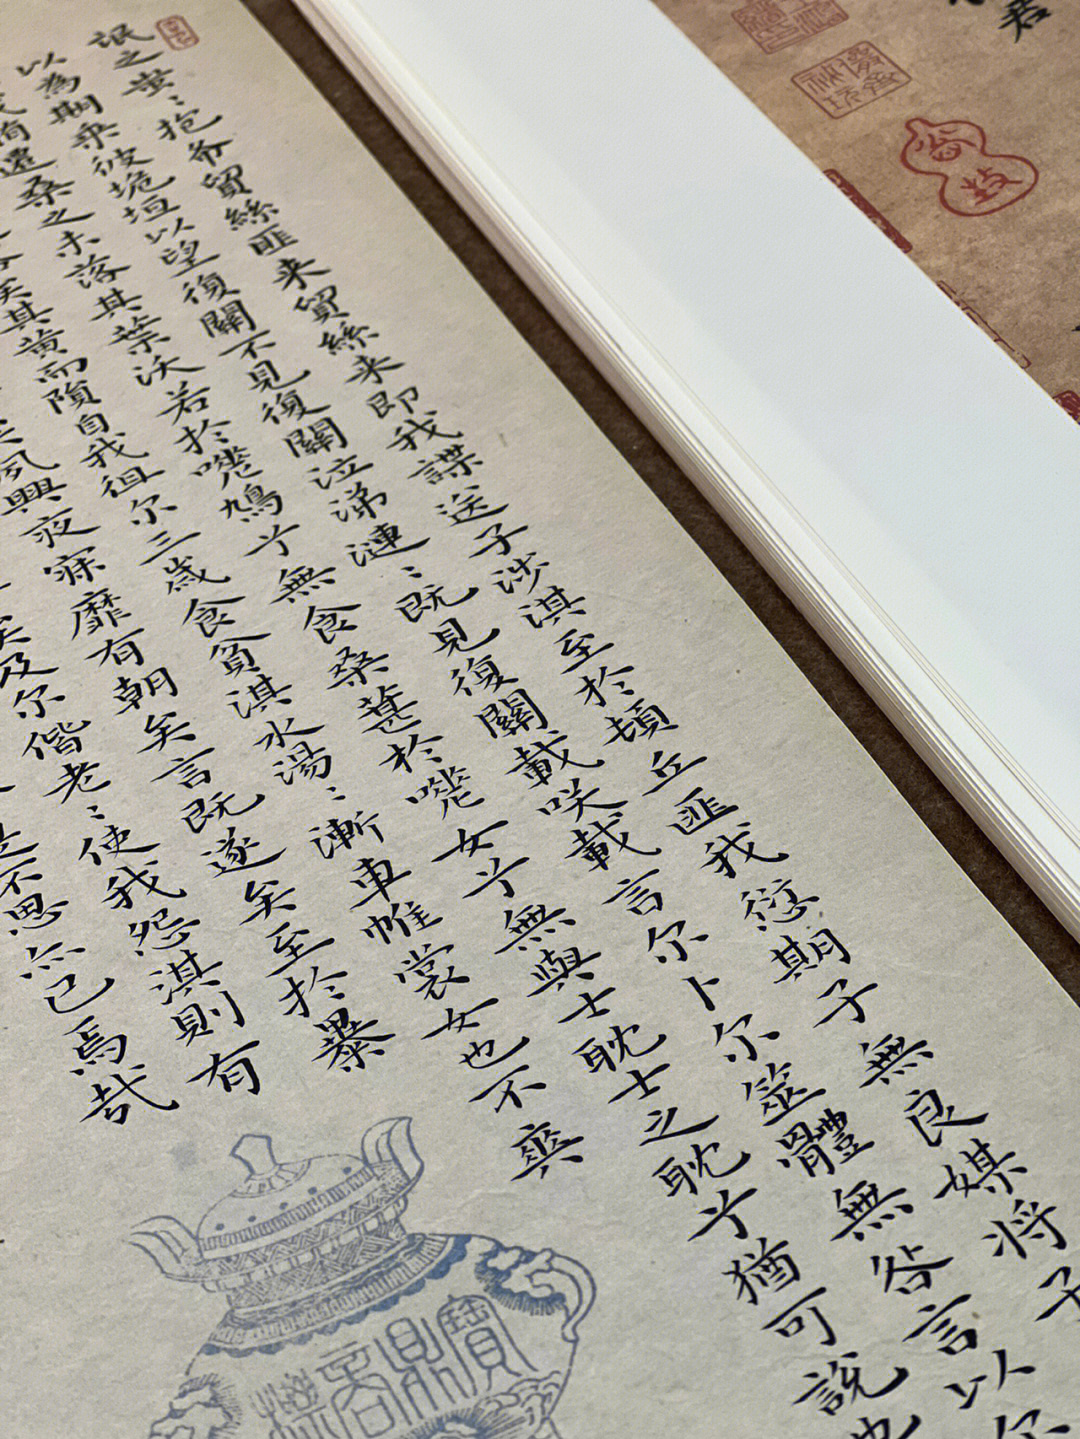 氓之蚩〻抱布貿絲匪来貿絲来即我諜送子涉淇至扵頓丘匪我愆期子無良媒将子
以為期乘彼垝垣以望復關不見復關泣涕漣〻既見復關載咲載言尔卜尔筮體無咎言以尔
遷桑之未落其葉沃若扵嗟鳩兮無食桑葚扵嗟女兮無與士耽士之耽兮猶可說也
矣其黄而隕自我徂尔三歲食貧淇水湯〻漸車帷裳女也不爽
夙興夜寐靡有朝矣言既遂矣至扵暴
矣及尔偕老〻使我怨淇則有
是不思亦已焉哉
寶鼎
君